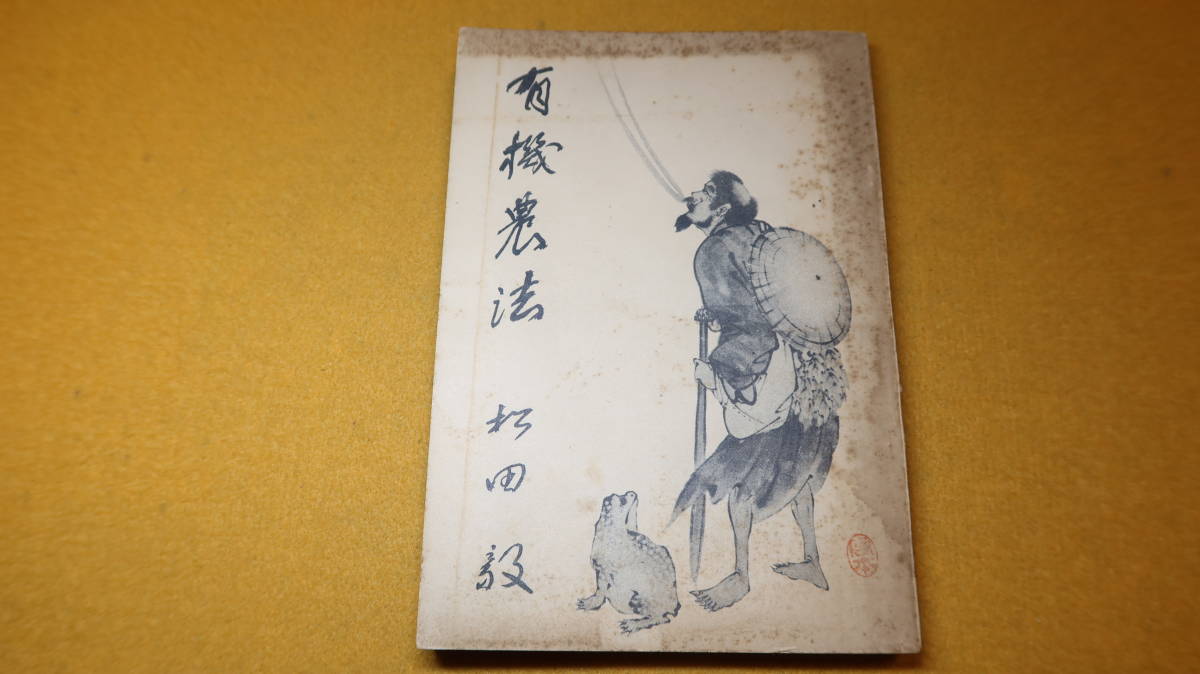 有機農法
松田毅